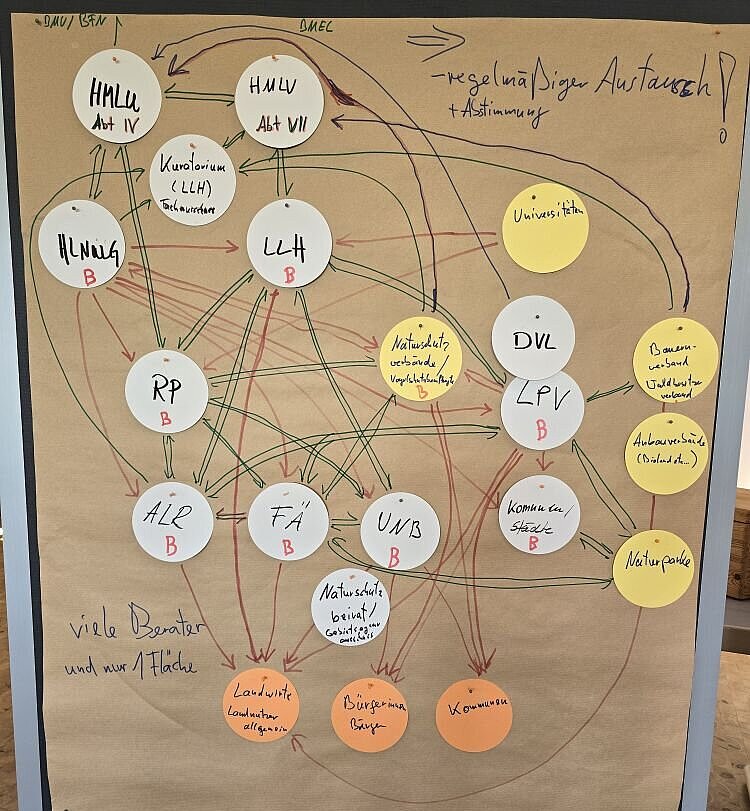 BMUV/BFN
BMEL
- regelmäßiger Austausch !
+ Abstimmung
HMLU
Abt IV
HMLU
Abt VII
Kuratorium
(LLH)
Universitäten
HLNUG
B
LLH
B
DVL
Naturschutz
verbände/
B
Bauern-
verband
Waldbesitzer
verband
RP
B
LPV
B
Anbauverbände
(Bioland etc...)
ALR
B
FÄ
B
UNB
B
Kommunen/
Städte
B
Naturparke
Naturschutz
beirat/
viele Berater
und nur 1 Fläche
Landwirte
Landnutzer
allgemein
Bürgerinnen
Bürger
Kommunen